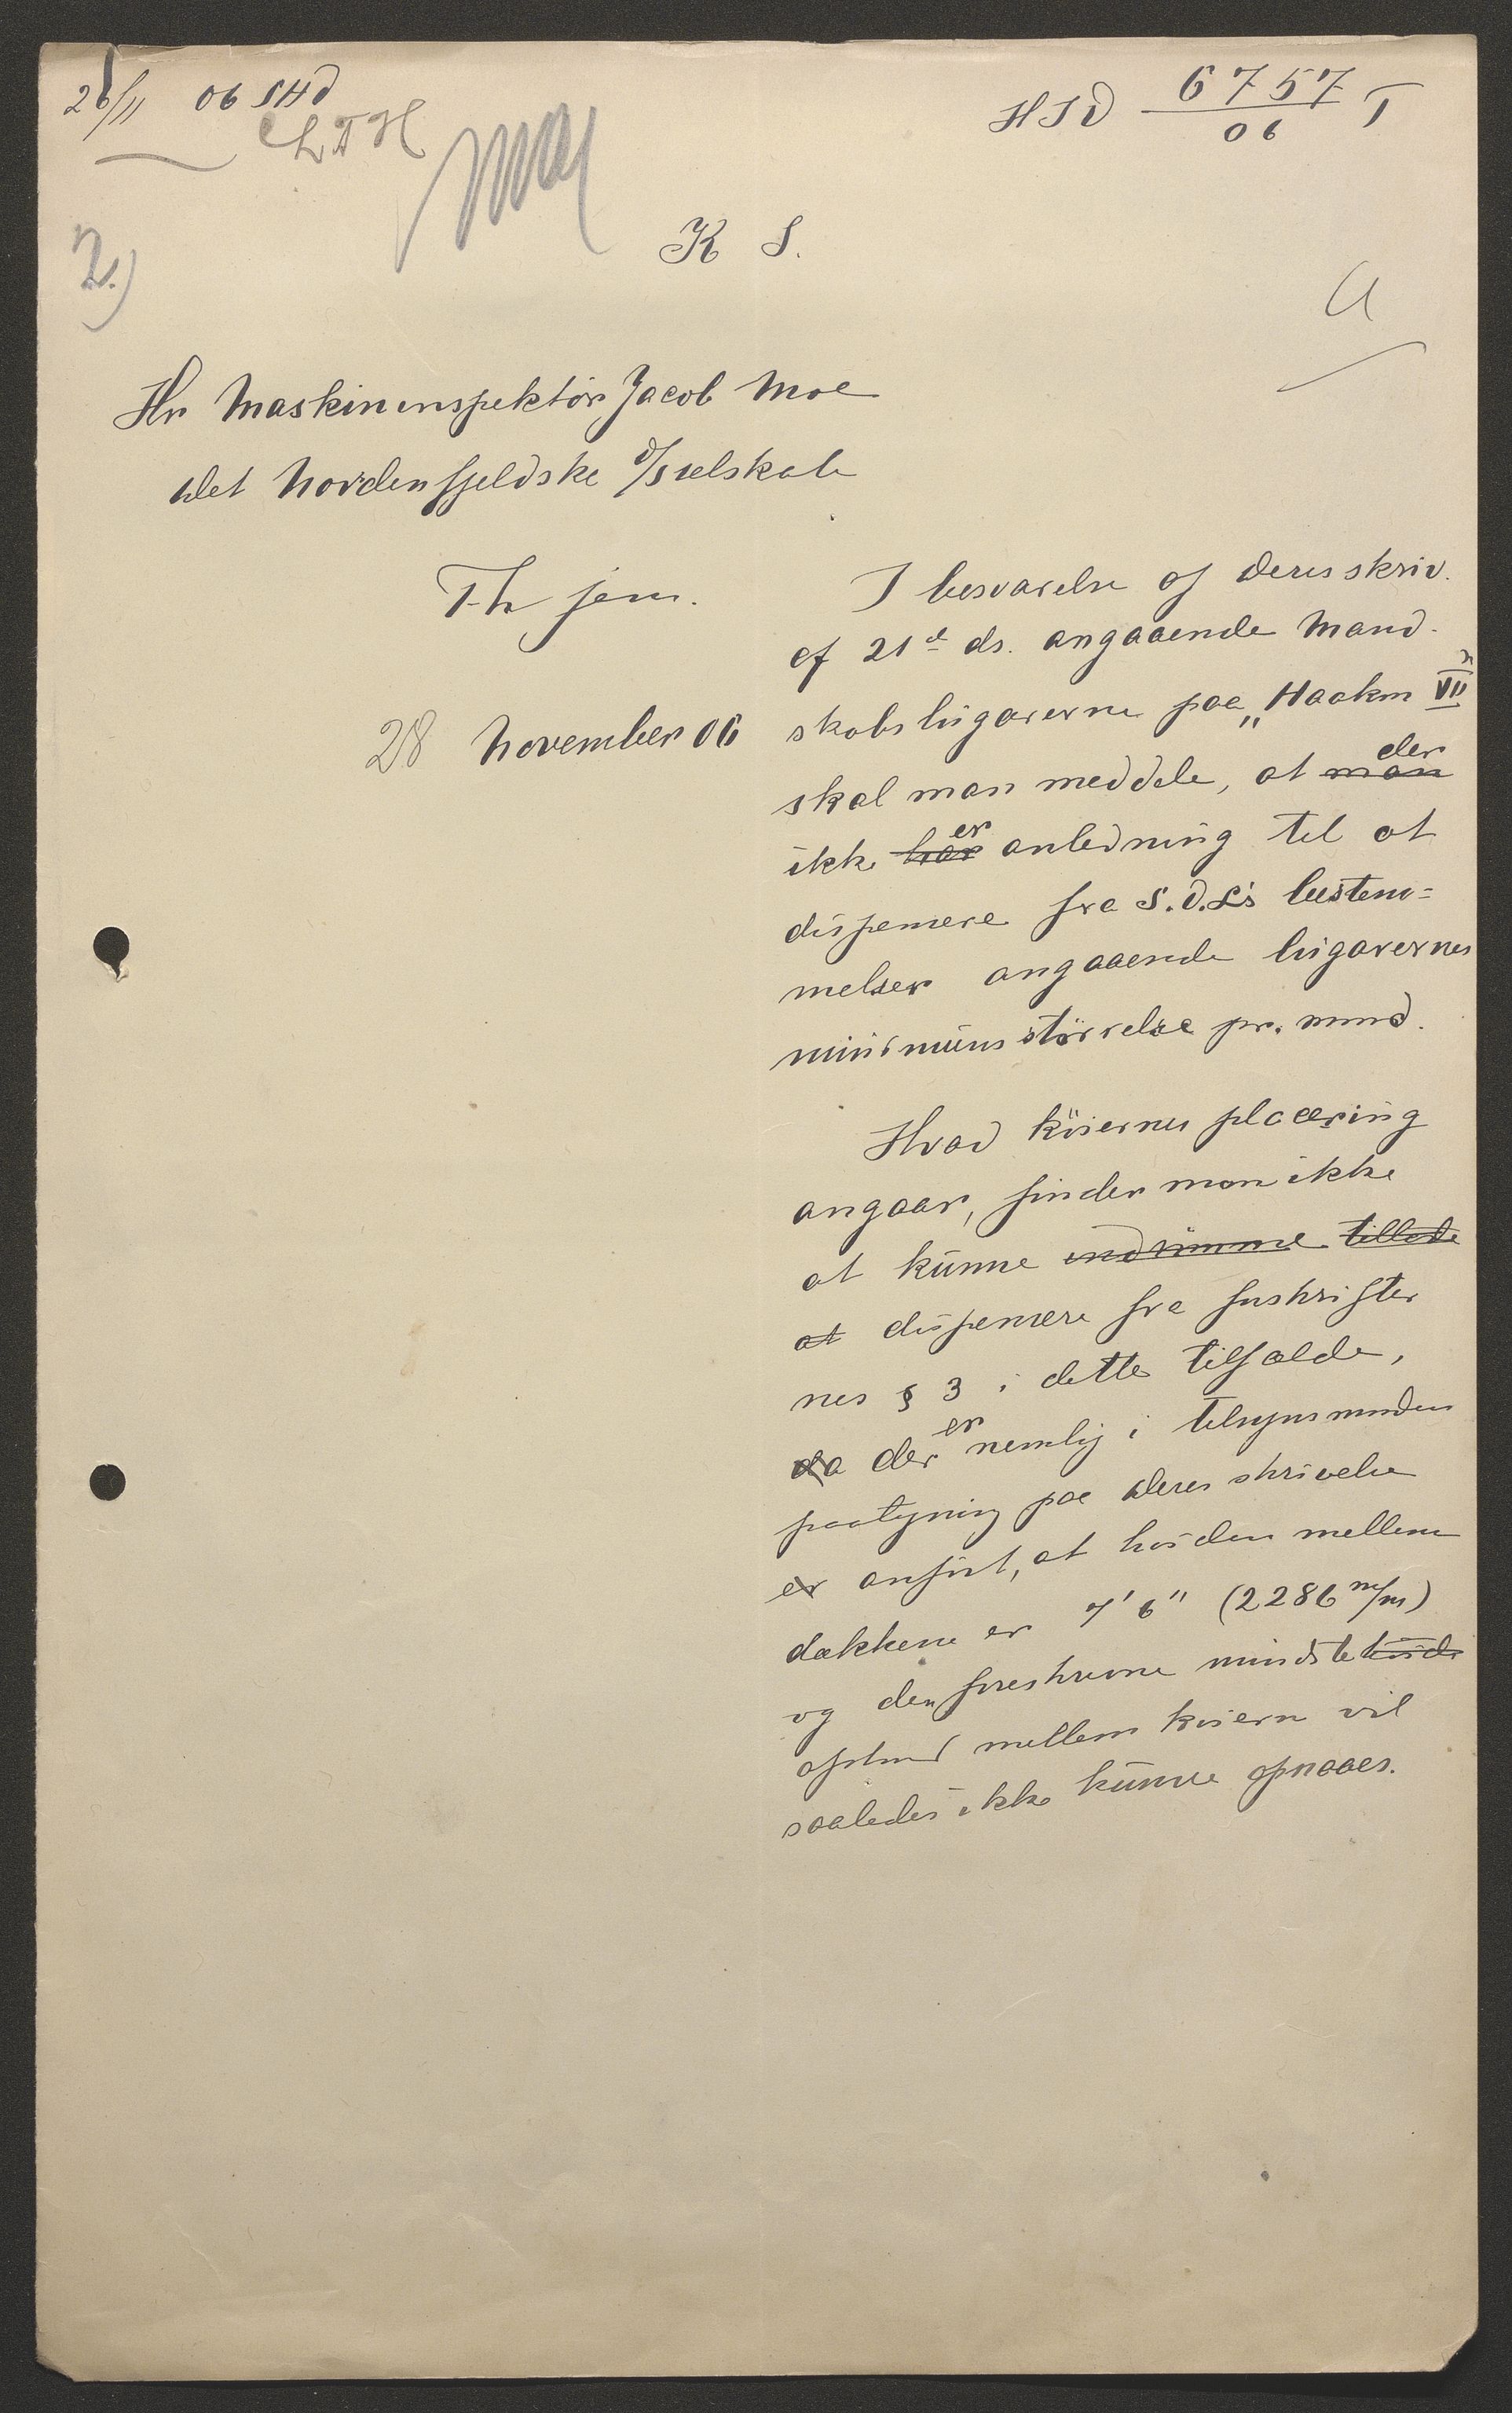 26/11 06 SHD
HSD 6757/06 T
LTH
2.)
K S.
Hr Maskininspektör Jacob Moe
Det Nordenfjeldske D/Sselskab
Th jem.
28 November 06
I besvarelse af Deres skriv.
af 21de ds. angaaende Mand-
skabslugarerne paa „Haakon VII"
skal man meddele, at man der
ikke har er anledning til at
dispensere fra S.D.L's bestem=
melser angaaende lugarernes
minimumsstörrelse pr. mand.
Hvad köiernes placering
angaar, finder man ikke
at kunne indrömme tillade
at dispensere fra forskrifter
nes § 3 i dette tilfælde,
da der er nemlig i tilsynsmandens
paategning paa Deres skrivelse
er anfört, at höiden mellem
dækkene er 7' 6" (2286 m/m)
og den foreskrevne mindste höide
afstand mellem köierne vil
saaledes ikke kunne opnaaes.